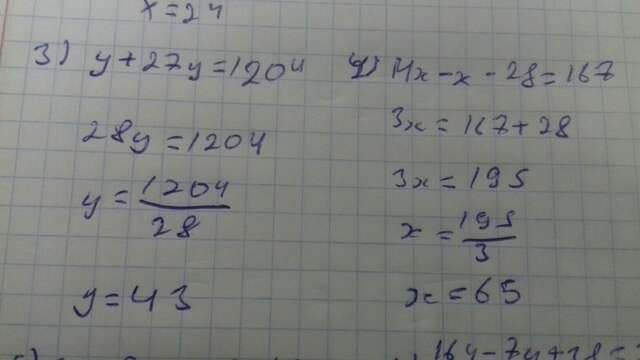 x=24
3) y+27y=1204
28y=1204
y=1204/28
y=43
4) 4x-x-28=167
3x=167+28
3x=195
x=195/3
x=65
16y-7y+18=